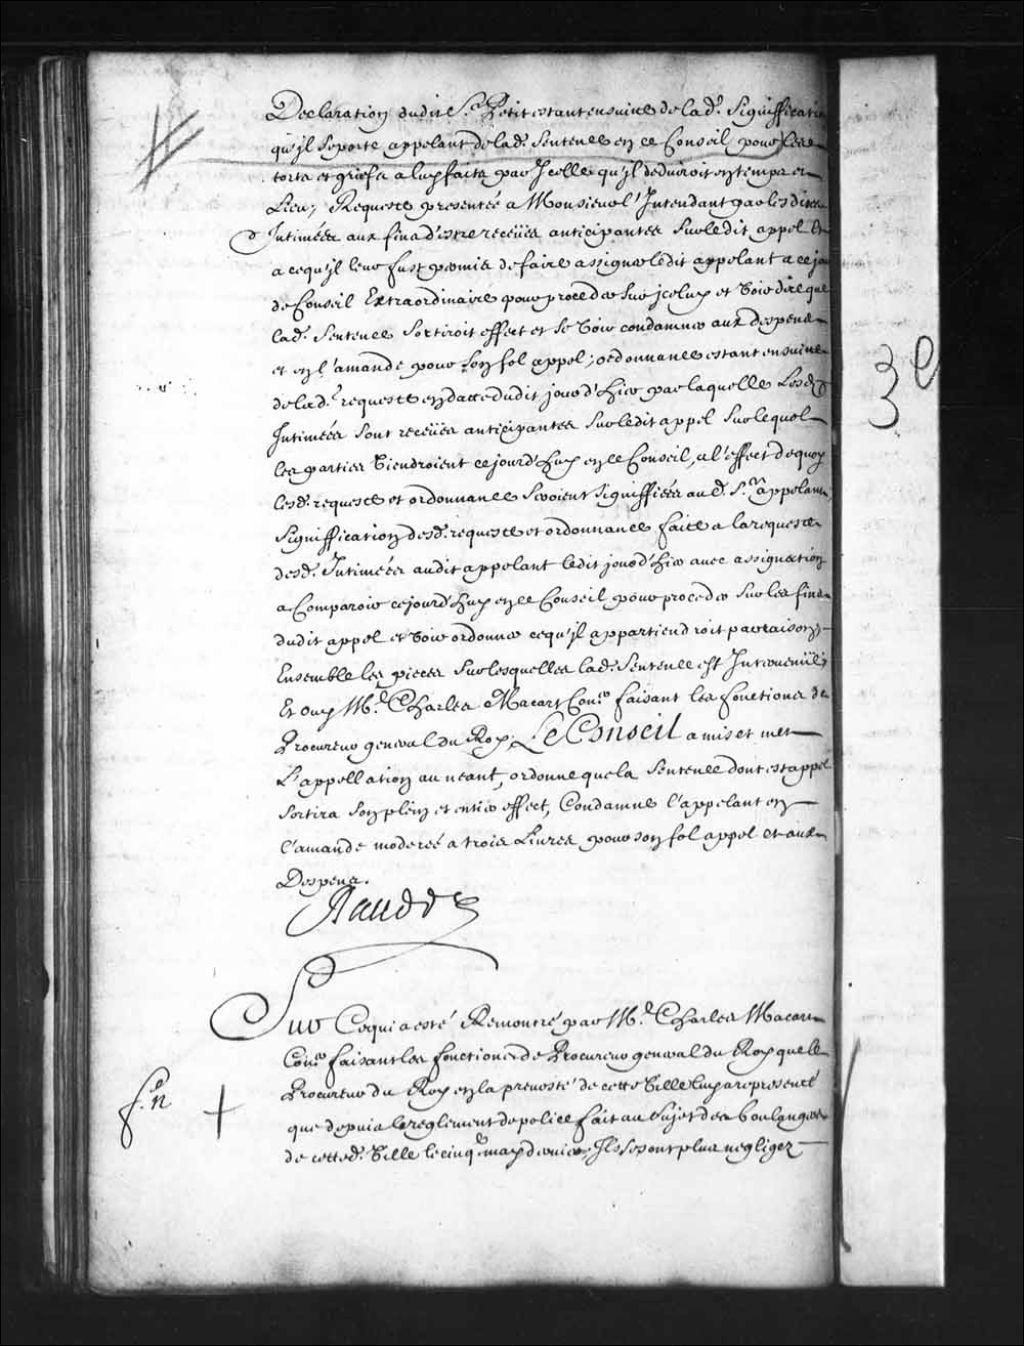 Declaration dudit Sr. Petit estant ensuitte de lad. Signiffication
qu'jl Seporte appelant delad. Sentence en ce Conseil pour les
torts et griefs a luy faits par Jcelle qu'jl deduiroit en temps et
Lieu; Requeste presentée a Monsieur l'Intendant par lesdites
Intimées aux fins d'estre receües anticipantes Sur ledit appel Et
a cequ'jl leur fust permis de faire assigner ledit appelant a ce jour
de Conseil Extraordinaire pour proceder Sur jceluy et Voir dire que
lad. Sentence Sortiroit effect et Se Voir condamner aux despens
et en l'amande pour Son fol appel; ordonnance estant ensuitte
delad. requeste en datte dudit jour d'hier par laquelle Lesd.
Intimées Sont receües anticipantes Sur ledit appel Sur lequel
les parties Viendroient cejourd'huy en ce Conseil, a l'effect dequoy
lesd. requeste et ordonnance Seroient Signiffiées aud. Sr. appelant
Signiffication desd. requeste et ordonnance faite a la requeste
desd. Intimées audit appelant ledit jour d'hier avec assignation
a Comparoir cejourd'huy en ce Conseil pour proceder Sur les fins
dudit appel et Voir ordonner cequ'jl appartiendroit par raison;
Ensemble les pieces Sur lesquelles lad. Sentence est Interuenüe;
Et ouy Me. Charles Macart Coner. faisant les fonctions de
Procureur general du Roy; Le Conseil a mis et met
L'appellation au neant, ordonne que la Sentence dont est appel
Sortira Son plein et entier effect, Condamne l'appelant en
l'amande moderée a trois Liures pour son fol appel et aux
Despens.
Raudot
3e
Sur Cequi a esté Remontré par Me. Charles Macart
Coner. faisant les fonctions de Procureur general du Roy que le
Procureur du Roy en la preuosté de cette Ville luy a representé
que depuis le reglement de police fait au Sujet des boulangers
de cetted. Ville le cinqe. may dernier, Ils se sont plus negligez